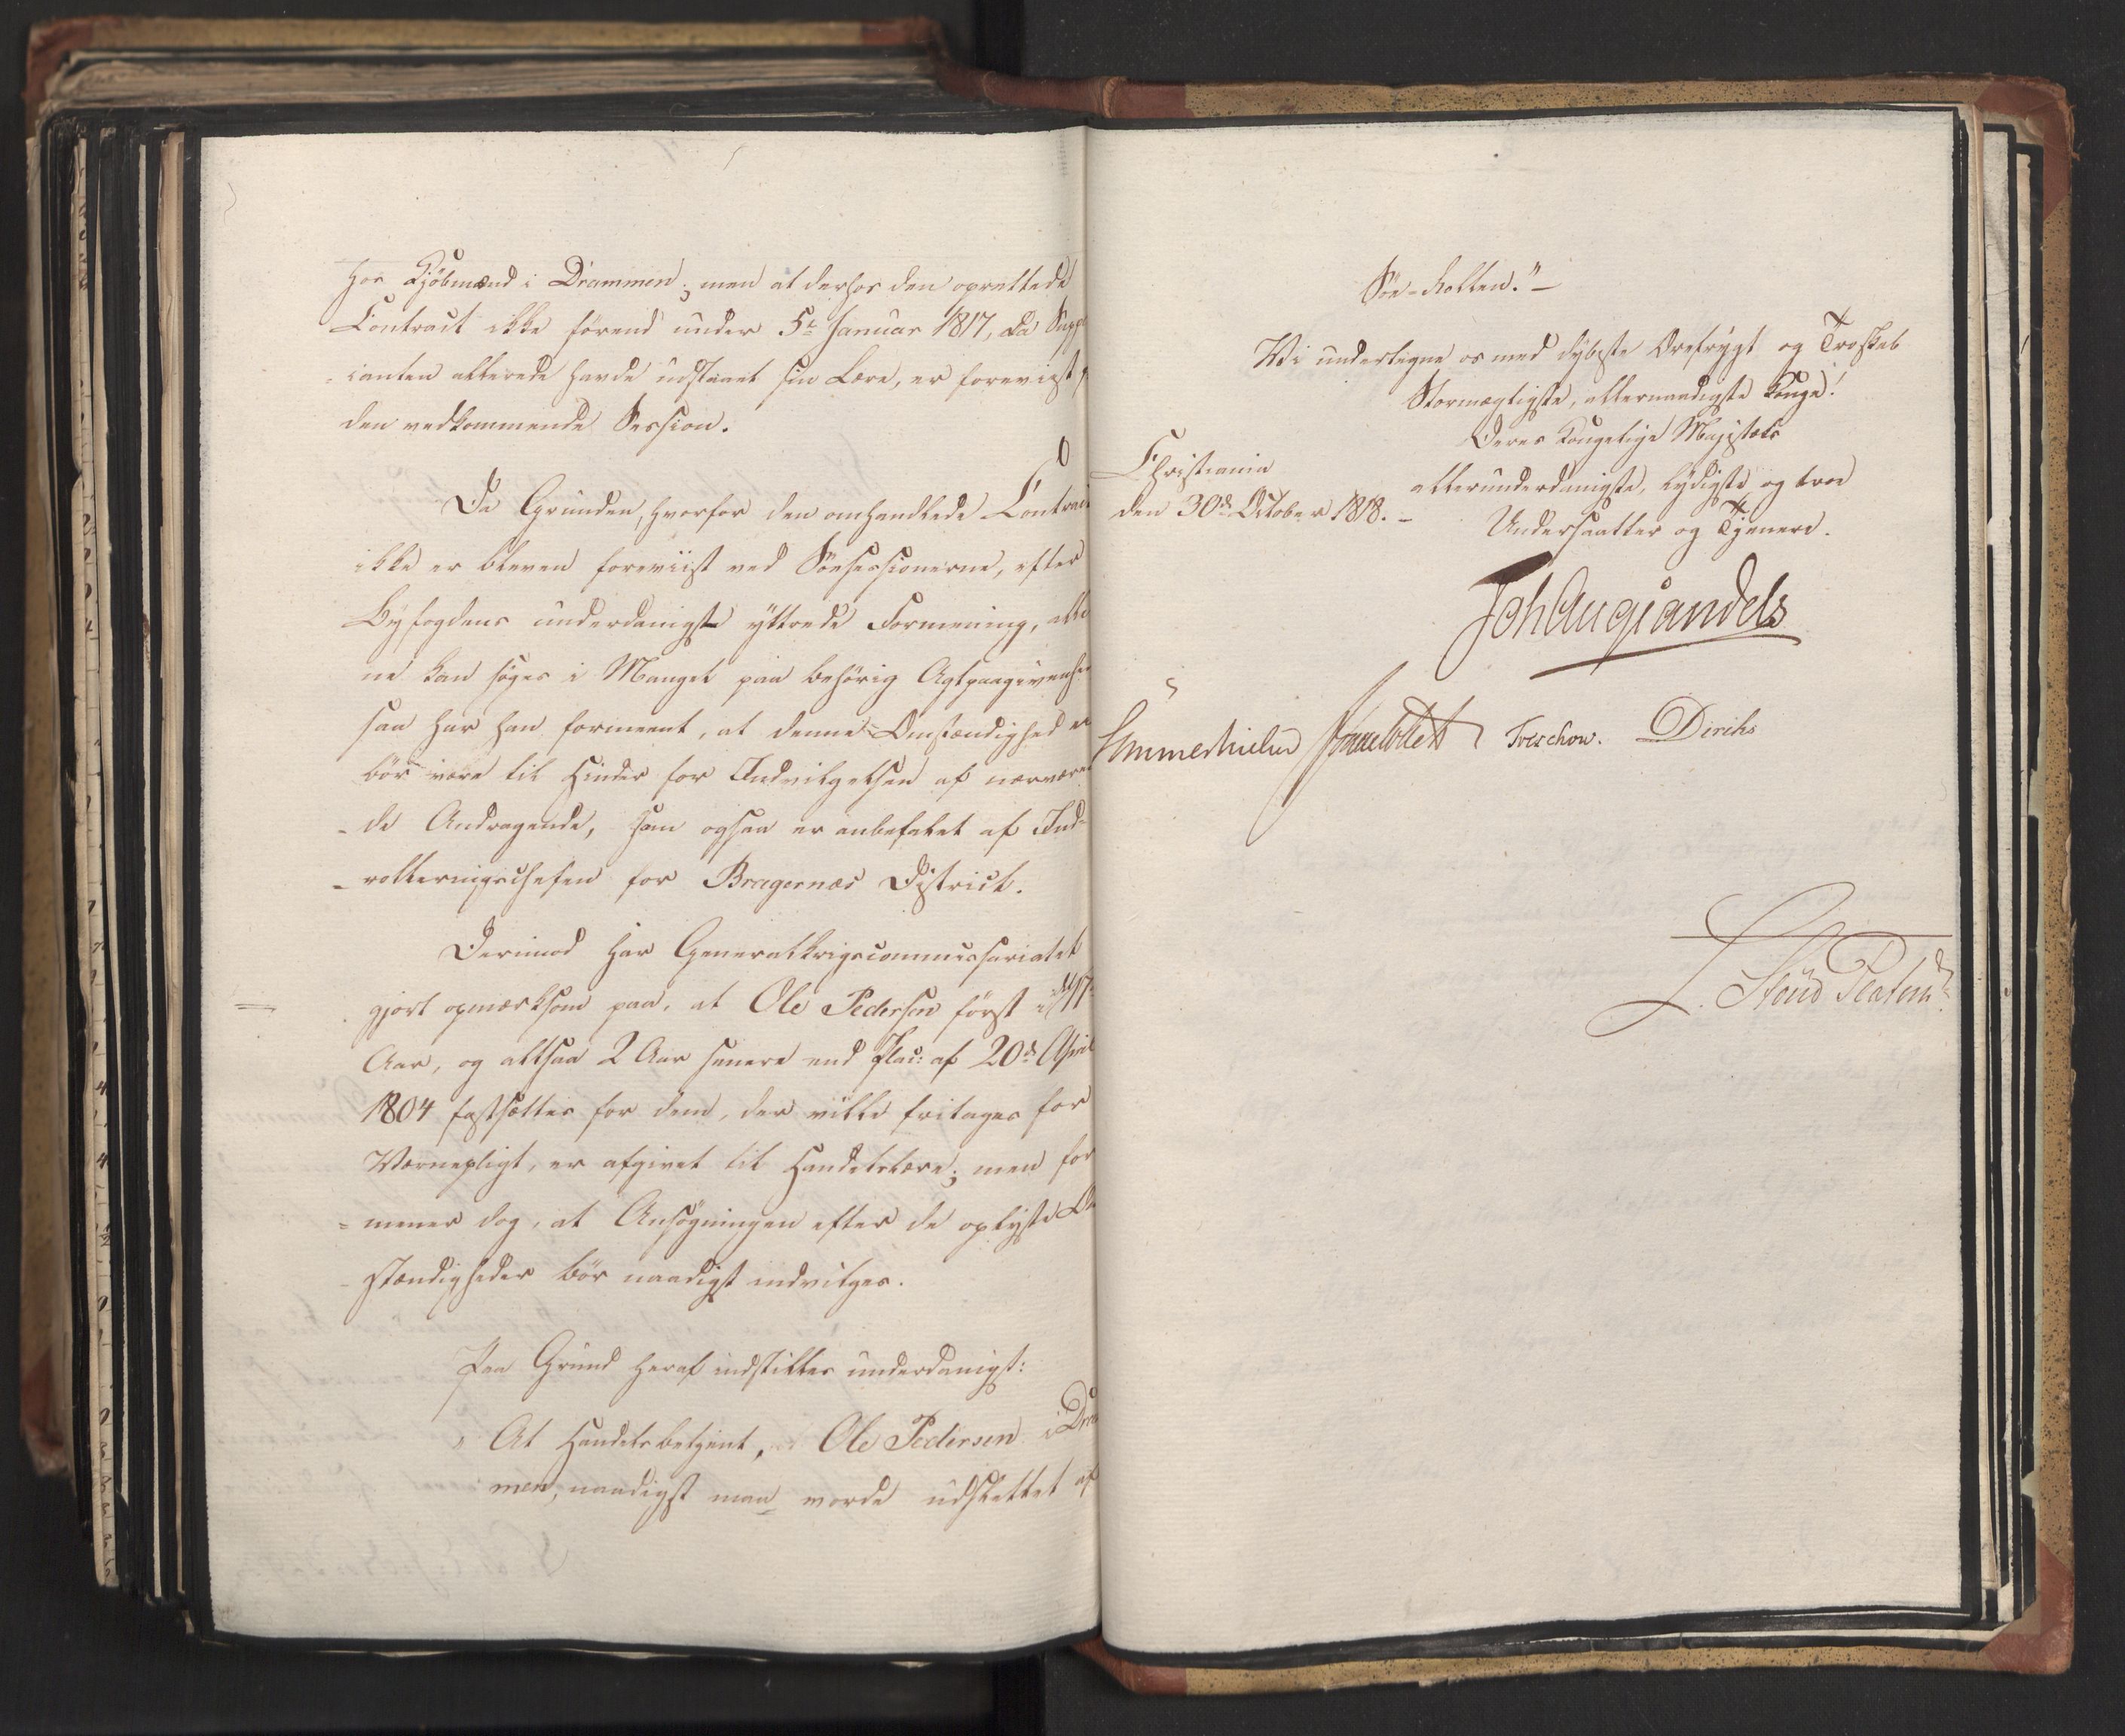 hos Kjöbmænd i Drammen; men at derhos den oprettede
Contract ikke förend under 5te Januar 1817, da Suppl
=ianten allerede havde udstaaet sin Lære, er foreviist
den vedkommende Session.
Da Grunden, hvorfor den omhandlede Contract
ikke er bleven foreviist ved Söesessionerne, efter
Byfogdens underdanigst yttrede Formening, alle
ne kan söges i Mangel paa behörig Agtpaagivenhed
saa har han formeent, at denne Omstændighed ei
bör være til Hinder for Indvilgelsen af nærværen
=de Andragende, som ogsaa er anbefalet af Ind=
=rolleringschefen for Bragernæs District.
Derimod har Generalkrigscommissariatet
gjort opmærksom paa, at Ole Pedersen først i 17de
Aar, og altsaa 2 Aar senere end Plac: af 20de April
1804 fastsættes for dem, der ville fritages for
Værnepligt, er afgivet til Handelslære; men for
=mener dog, at Ansögningen efter de oplyste Om
stændigheder bör naadigst indvilges.
Paa Grund heraf indstilles underdanigst:
„At Handelsbetjent, Ole Pedersen i Dra
men, naadigst maa vorde udslettet af
Söe-Rollen."
Vi undertegne os med dybeste Ærefrygt og Troskab
Stormægtigste, allernaadigste Konge!
Deres Kongelige Majestæts
Christiania
den 30te October 1818.
allerunderdanigste, lydigste og troe
Undersaatter og Tjenere.
Joh Aug Sandels
Sommerhielm Jonas Collett Treschow. Diriks
L. Stoud Platou